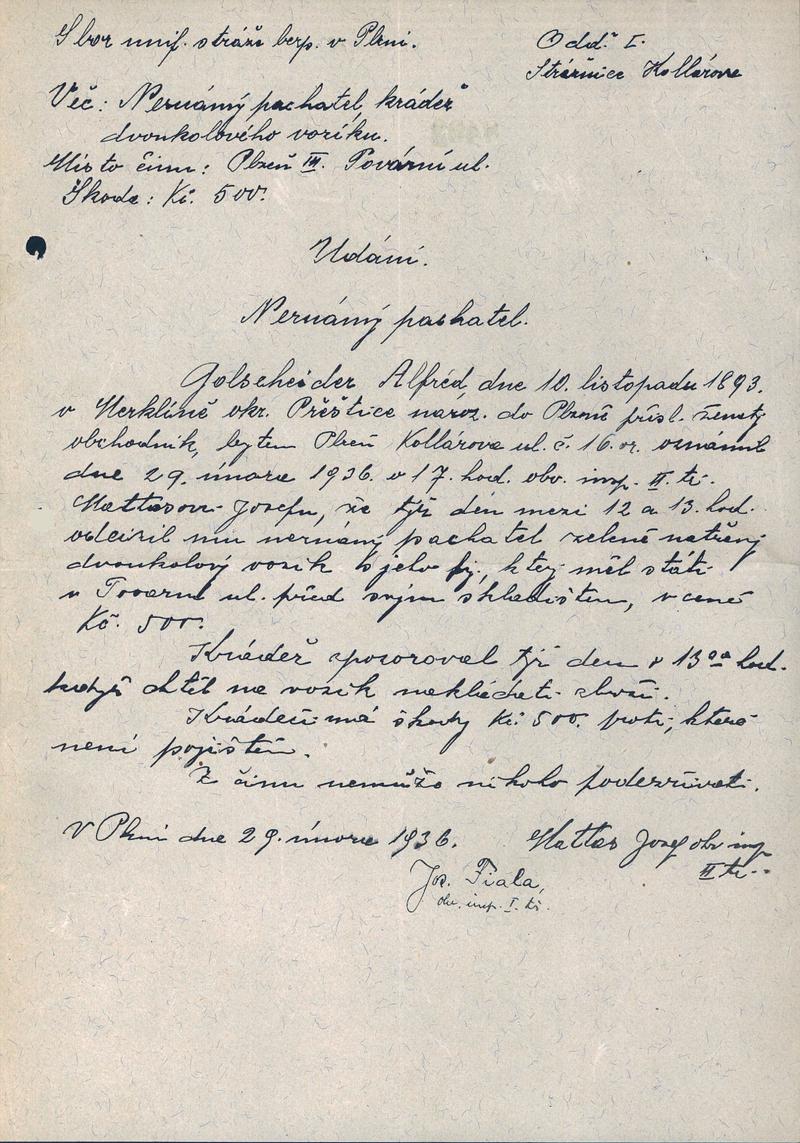 Sbor unif. stráže bezp. v Plzni.
Odd. I.
Strážnice Kollárova
Věc: Neznámý pachatel, krádež
dvoukolového vozíku.
Místo činu: Plzeň III. Tovární ul.
Škoda: Kč. 500.
Udání.
Neznámý pachatel.
Golscheider Alfréd, dne 10. listopadu 1893.
v Merklíně okr. Přeštice naroz. do Plzně přísl. ženatý
obchodník, bytem Plzeň Kollárova ul. č. 16. oz. oznámil
dne 29. února 1936 v 17. hod. obv. insp. II. tř.
Mattasovi Josefu, že týž den mezi 12 a 13. hod.
odcizil mu neznámý pachatel zeleně natřený
dvoukolový vozík s jeho fy, který měl státi
v Tovární ul. před svým skladištěm, v ceně
Kč. 500.
Krádež zpozoroval týž den v 13 hod.
když chtěl na vozík nakládati zboží.
Krádeží má škody Kč. 500. proti, které
není pojištěn.
Z činu nemůže nikoho podezřívati.
V Plzni dne 29. února 1936.
Mattas Josef obv. insp
II tř.
Jos. Fiala,
obv. insp. I. tř.